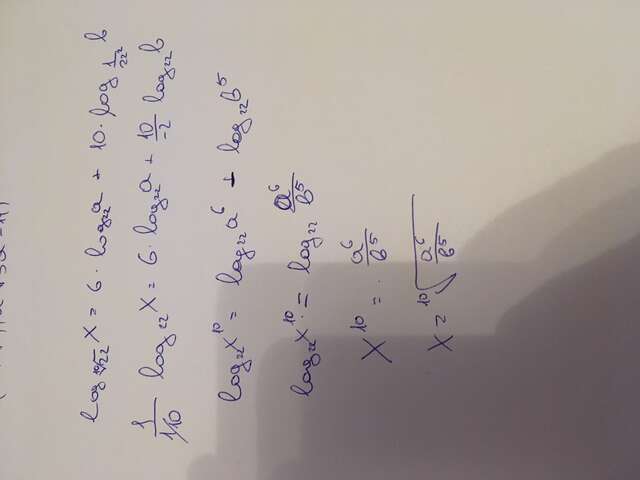 log_{\sqrt[10]{22}} x = 6 · log_{22} a + 10 · log_{\frac{1}{22^2}} b
\frac{1}{1/10} log_{22} x = 6 · log_{22} a + \frac{10}{-2} log_{22} b
log_{22} x^{10} = log_{22} a^6 - log_{22} b^5
log_{22} x^{10} = log_{22} \frac{a^6}{b^5}
x^{10} = \frac{a^6}{b^5}
x = \sqrt[10]{\frac{a^6}{b^5}}